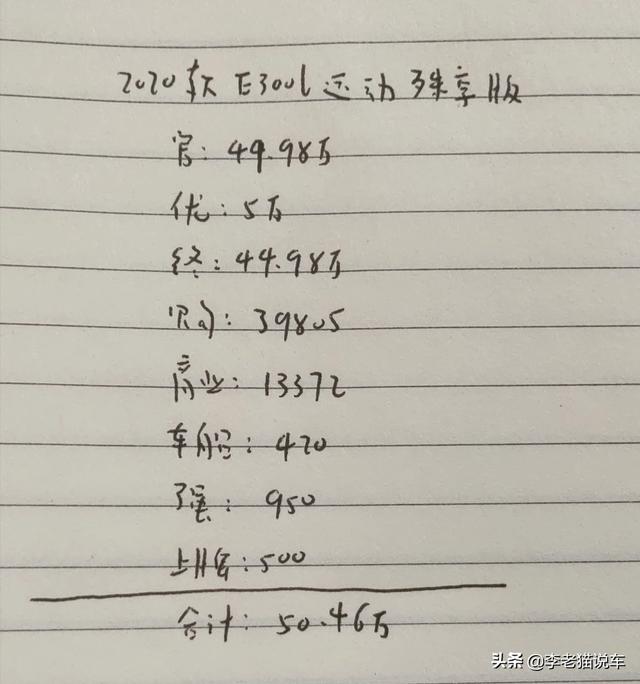 2020款 E300L运动殊享版
官:49.98万
优:5万
终:44.98万
购:39805
商业:13372
车船:420
强:950
上牌:500
合计:50.46万
头条 @李老猫说车